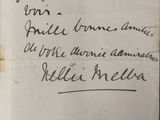 voir.
Mille bonnes amitiés
de votre dévouée admiratrice
Nellie Melba